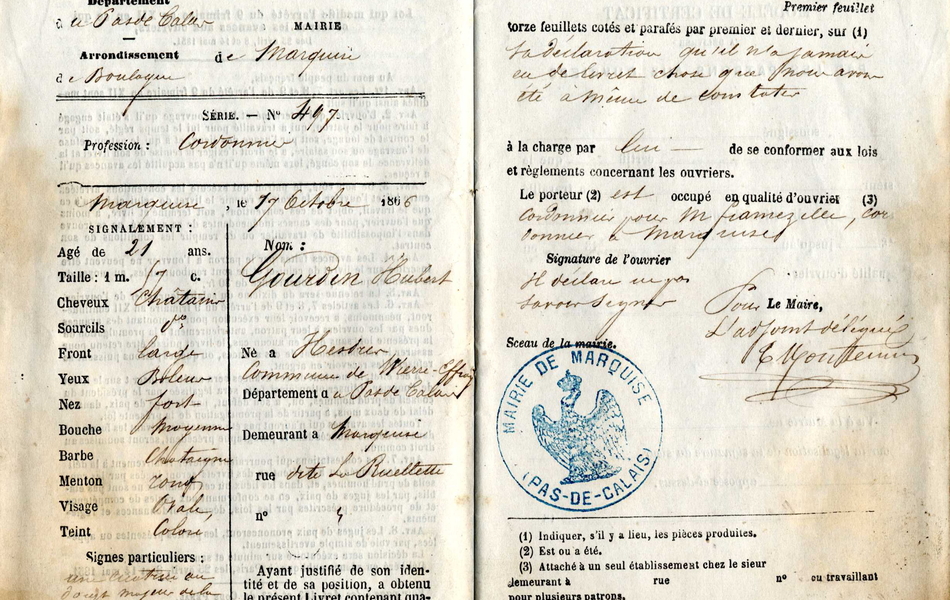 Département
du Pas de Calais
MAIRIE
Arrondissement
de Marquise
de Boulogne
SÉRIE. — N° 497
Profession : Cordonnier
Marquise, le 17 Octobre 1866
SIGNALEMENT :
Agé de 21 ans.
Taille : 1 m. 67 c.
Cheveux Châtains
Sourcils do
Front large
Yeux Bleus
Nez fort
Bouche Moyenne
Barbe Chataigne
Menton rond
Visage Ovale,
Teint Coloré
Signes particuliers :
une cicatrice au
doigt majeur de la
Nom :
Gourdin Hubert
Né a Hesdres,
Commune de Wierre-Effroy
Département du Pas de Calais
Demeurant a Marquise
rue dite La Ruellette
n°
Ayant justifié de son iden-
tité et de sa position, a obtenu
le présent Livret contenant qua-
Premier feuillet
torze feuillets cotés et parafés par premier et dernier, sur (1)
sa déclaration qu'il n'a jamais
eu de livret chose que nous avons
été à même de constater
à la charge par lui — de se conformer aux lois
et règlements concernant les ouvriers.
Le porteur (2) est occupé en qualité d'ouvrier (3)
cordonnier pour M. framezelle, cor
donnier à Marquise
Signature de l'ouvrier
Il déclare ne pas
savoir Signer
Pour Le Maire,
L'adjoint délégué
Sceau de la mairie.
MAIRIE DE MARQUISE
(PAS-DE-CALAIS)
(1) Indiquer, s'il y a lieu, les pièces produites.
(2) Est ou a été.
(3) Attaché à un seul établissement chez le sieur
demeurant à rue n° ou travaillant
pour plusieurs patrons.